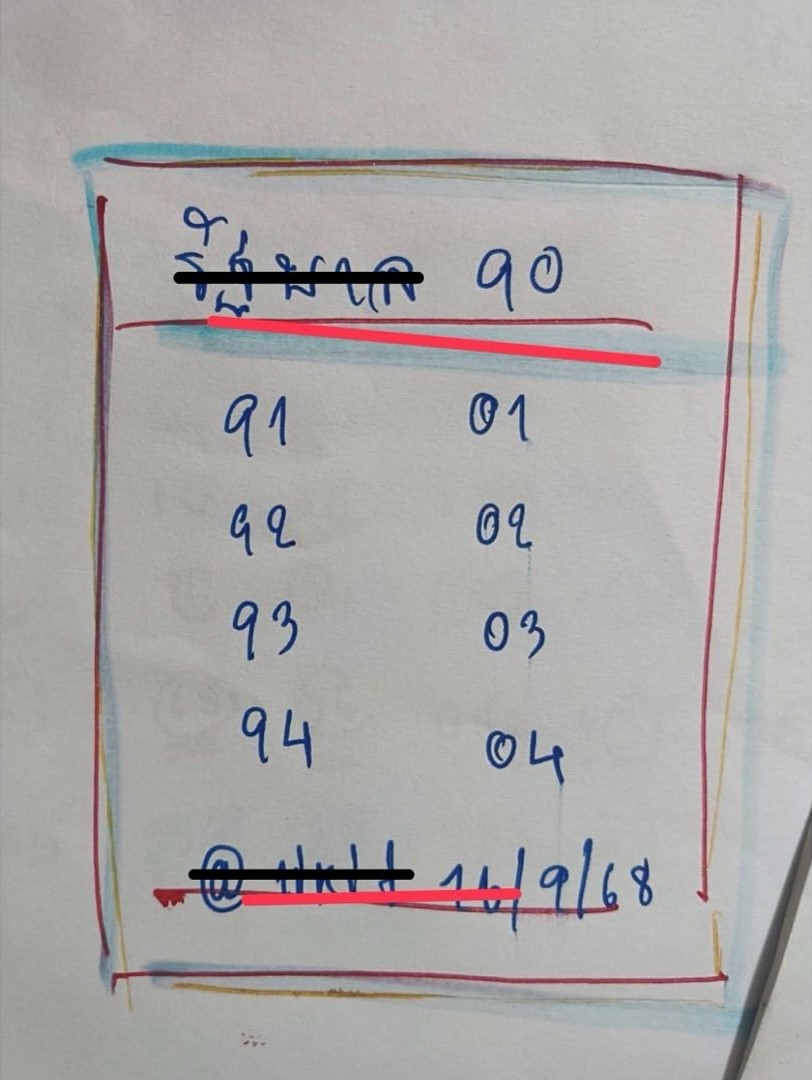 รัฐบาล 90
91 01
92 02
93 03
94 04
@ 16/9/68